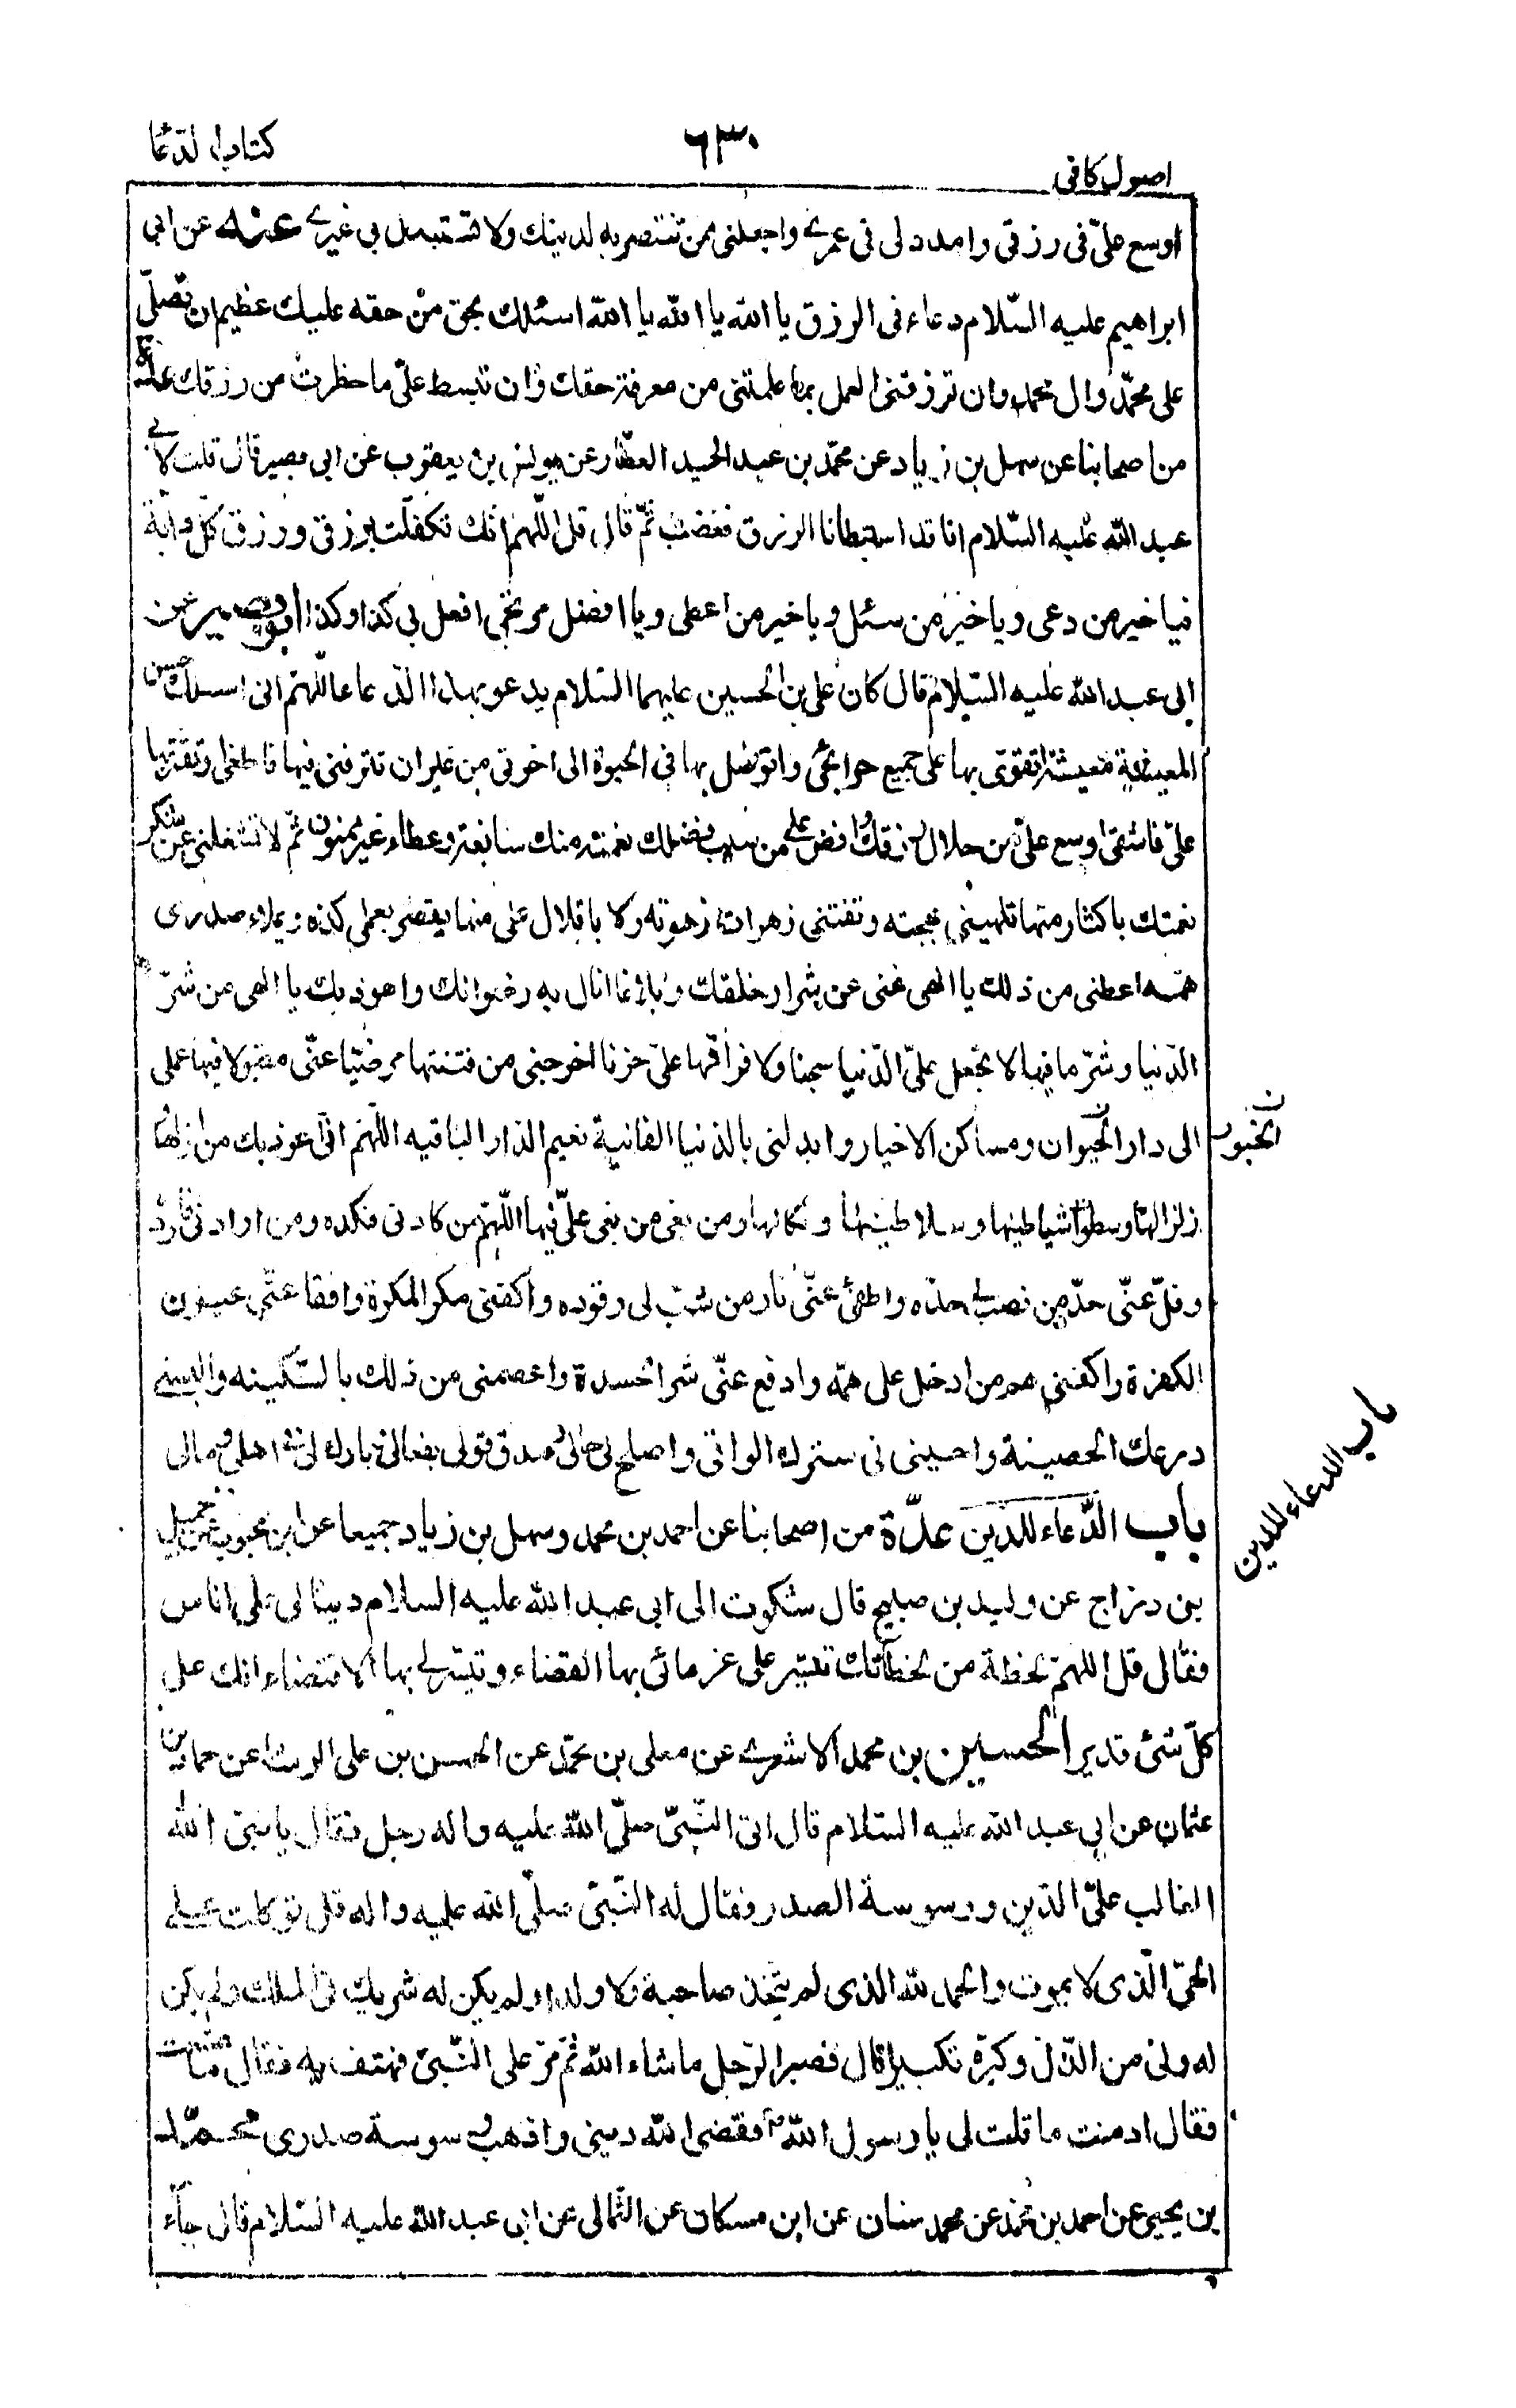 كتاب الدعا
٦٣٠
اصول كافى
اوسع علىّ فى رزقى وامدد لى فى عمرى واجعلنى ممن تنتصر به لدينك ولا تستبدل بى غيرى عنه عن ابى
ابراهيم عليه السّلام دعاء فى الرزق يا الله يا الله يا الله اسئلك بحق من حقه عليك عظيم ان تصلّى
على محمّد وال محمد وان ترزقنى العمل بما علمتنى من معرفة حقك وان تبسط علىّ ما حظرت من رزقك عدّة
من اصحابنا عن سهل بن زياد عن محمّد بن عبد الحميد العطّار عن يونس بن يعقوب عن ابى بصير قال قلت لابى
عبد الله عليه السّلام انا قد استبطأنا الرزق فغضب ثمّ قال قل اللّهم انك تكفلت برزقى ورزق كلّ دابة
فيا خير من دعى ويا خير من سئل ويا خير من اعطى ويا افضل مرتجى افعل بى كذا وكذا ابو بصير عن
ابى عبد الله عليه السّلام قال كان على بن الحسين عليهما السّلام يدعو بهذا الدّعاء اللّهم انى اسئلك حسن
المعيشة معيشة اتقوى بها على جميع حوائجى واتوصل بها فى الحيوة الى اخرتى من غير ان تترفنى فيها فاطغى وتقتر بها
علىّ فاشقى اوسع علىّ من حلال رزقك وافض علىّ من سيب فضلك نعمة منك سابغة وعطاء غير ممنون ثمّ لا تشغلنى عن شكر
نعمتك باكثار منها تلهينى بهجته وتفتنى زهرات زهوته ولا باقلال علىّ منها يقصر بعملى كده ويملاء صدرى
همّه اعطنى من ذلك يا الهى غنى عن شرار خلقك وبلاغا انال به رضوانك واعوذ بك يا الهى من شرّ
الدّنيا وشرّ ما فيها لا تجعل علىّ الدّنيا سجنا ولا فراقها علىّ حزنا اخرجنى من فتنتها مرضيّا عنّى مقبولا فيها عملى
الى دار الحيوان ومساكن الاخيار وابدلنى بالدنيا الفانية نعيم الدار الباقيه اللّهم انى اعوذ بك من ازلها
زلزالها وسطوات شياطينها وسلاطينها ونكالها ومن بغى من بغى علىّ فيها اللّهم من كادنى فكده ومن ارادنى فارده
وفلّ عنّى حدّ من نصب لى حدّه واطفئ عنّى نار من شبّ لى وقوده واكفنى مكر المكرة وافقا عنّى عيون
الكفرة واكفنى هم من ادخل على همّه وادفع عنّى شر الحسدة واعصمنى من ذلك بالسّكينه والبسنى
درعك الحصينة واحينى فى سترك الواقى واصلح لى حالى وصدق قولى بفعالى وبارك لى فى اهلى ومالى
باب الدّعاء للدين عدّة من اصحابنا عن احمد بن محمد وسهل بن زياد جميعا عن ابن محبوب عن جميل
بن دراج عن وليد بن صبيح قال شكوت الى ابى عبد الله عليه السلام دينا لى على اناس
فقال قل اللهمّ لحظة من لحظاتك تيسّر على غرمائى بها القضاء وتيسّر لى بها الاقتضاء انك على
كلّ شئ قدير الحسين بن محمد الاشعرى عن معلى بن محمّد عن الحسن بن على الوشا عن حماد بن
عثمان عن ابى عبد الله عليه السّلام قال اتى النّبىّ صلّى الله عليه واله رجل فقال يا نبى الله
الغالب علىّ الدّين ووسوسة الصدر فقال له النّبىّ صلّى الله عليه واله قل توكلت على
الحىّ الّذى لا يموت والحمد لله الذى لم يتّخذ صاحبة ولا ولدا ولم يكن له شريك فى الملك ولم يكن
له ولى من الذّل وكبّره تكبيرا قال فصبر الرّجل ما شاء الله ثمّ مرّ على النّبىّ فهتف به فقال ما صنعت
فقال ادمنت ما قلت لى يا رسول الله ص فقضى الله دينى واذهب وسوسة صدرى محمّد
بن يحيى عن احمد بن محمد عن محمد سنان عن ابن مسكان عن الثّمالى عن ابى عبد الله عليه السّلام قال جآء
باب الدعاء للدين